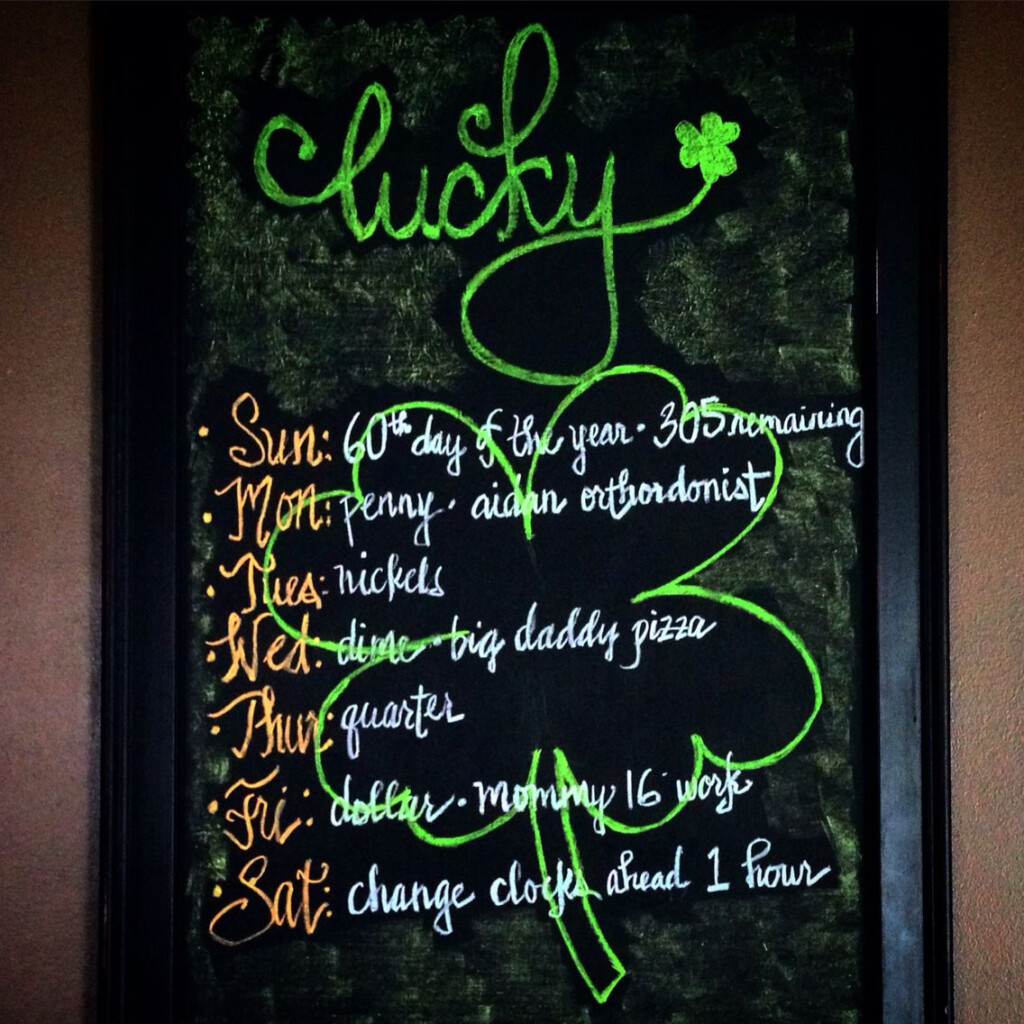 lucky
• Sun: 60th day of the year • 305 remaining
• Mon: penny • aidan orthordonist
• Tues: nickels
• Wed: dime • big daddy pizza
• Thur: quarter
• Fri: dollar • mommy 16 work
• Sat: change clocks ahead 1 hour